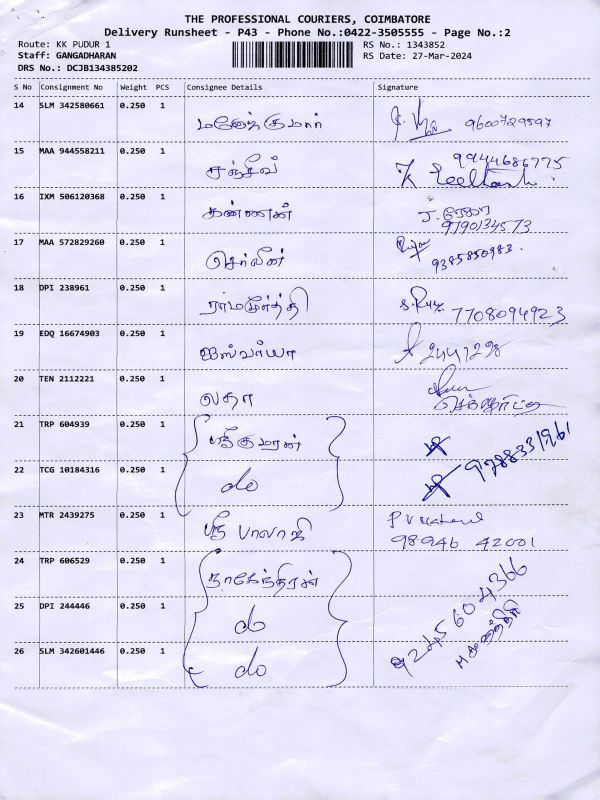 THE PROFESSIONAL COURIERS, COIMBATORE
Delivery Runsheet - P43 - Phone No.:0422-3505555 - Page No.:2
Route: KK PUDUR 1 RS No.: 1343852
Staff: GANGADHARAN RS Date: 27-Mar-2024
DRS No.: DCJB134385202
S No Consignment No Weight PCS Consignee Details Signature
14 SLM 342580661 0.250 1
மனோஜ்குமார் 9600729597
15 MAA 944558211 0.250 1
சஞ்சீவ் 9944686775
16 IXM 506120368 0.250 1
கண்ணன் J. ரேகா
9190134573
17 MAA 572829260 0.250 1
செர்லின் 9385850983.
18 DPI 238961 0.250 1
ராமமூர்த்தி 7708094923
19 EDQ 16674903 0.250 1
ஐஸ்வர்யா 2441298
20 TEN 2112221 0.250 1
லதா
21 TRP 604939 0.250 1
ஸ்ரீகுமரன் 9788331961
22 TCG 10184316 0.250 1
do
23 MTR 2439275 0.250 1
ஸ்ரீ பாலாஜி 98946 42001
24 TRP 606529 0.250 1
நாகேந்திரன் 9245604366
25 DPI 244446 0.250 1
do
26 SLM 342601446 0.250 1
do